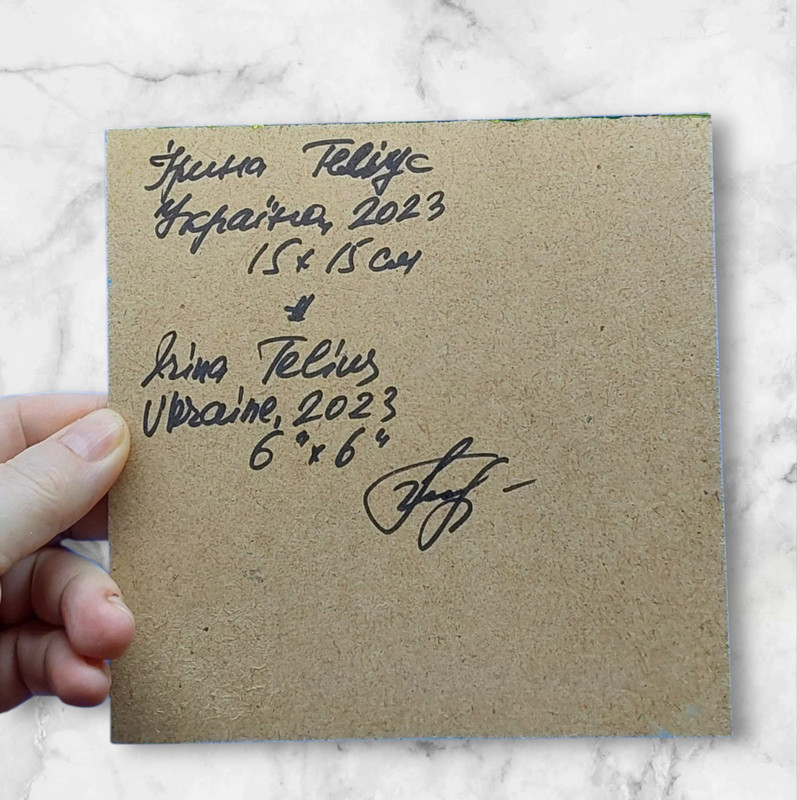 Ірина Теліус
Україна, 2023
15 x 15 см
Irina Telius
Ukraine, 2023
6" x 6"